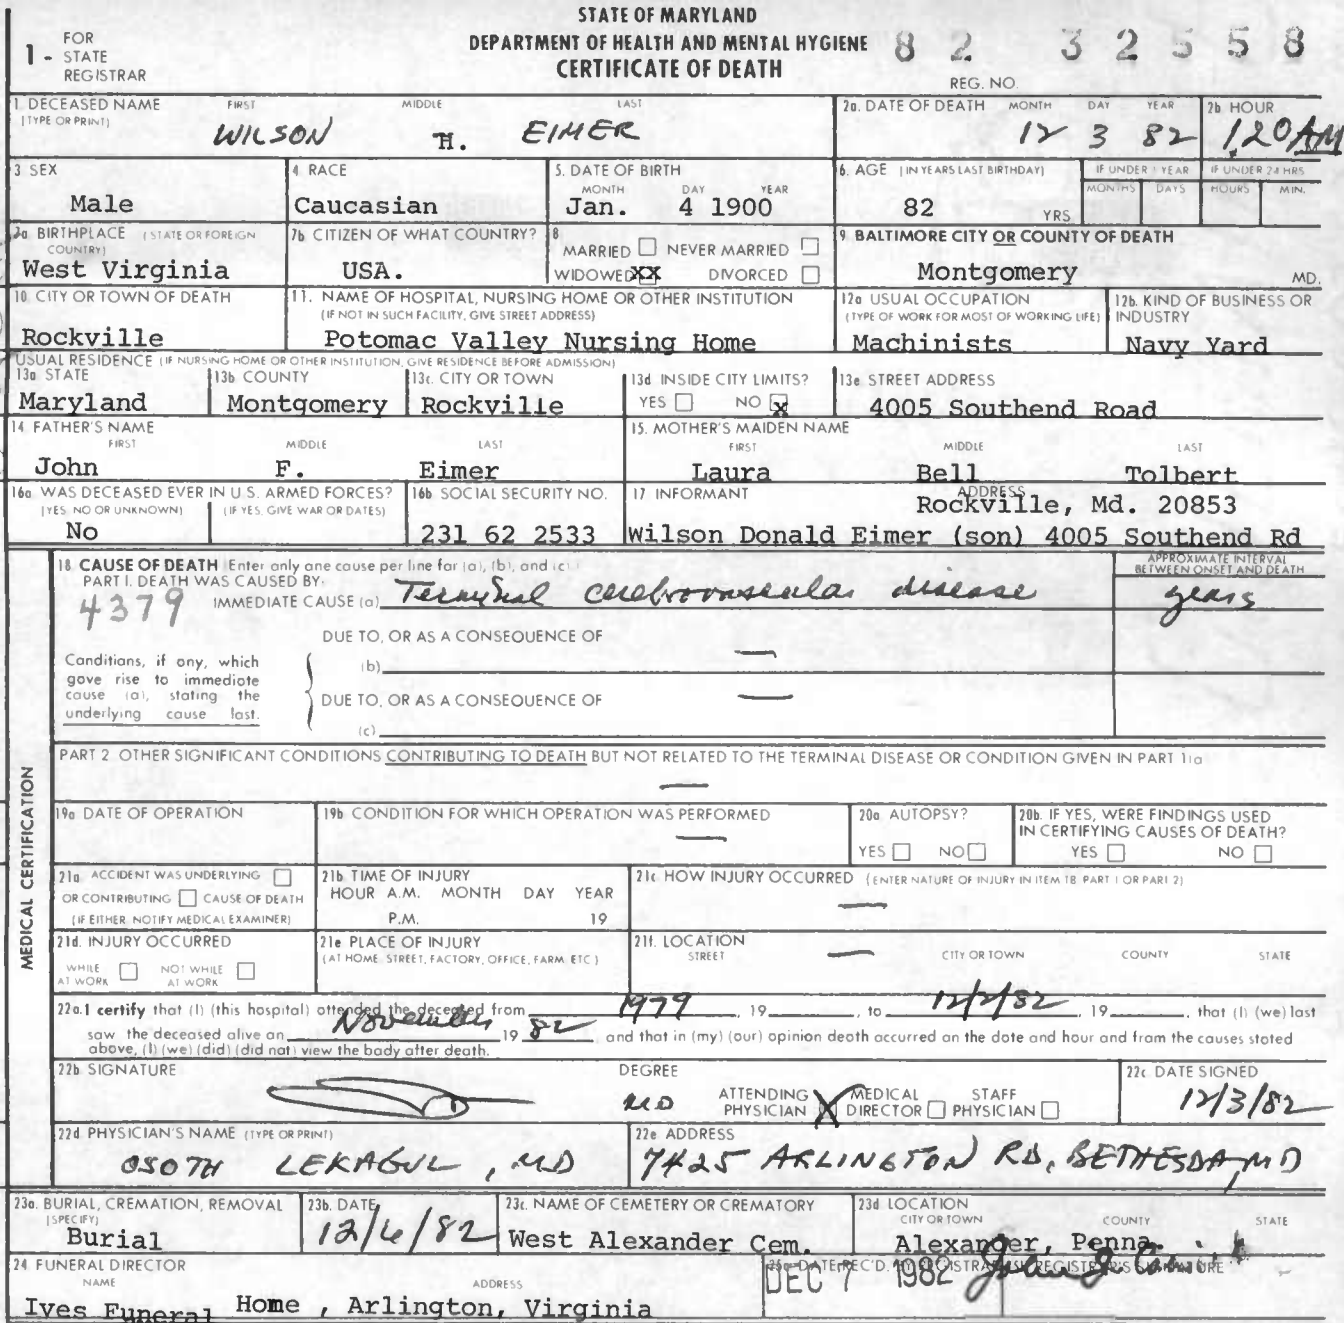 STATE OF MARYLAND
DEPARTMENT OF HEALTH AND MENTAL HYGIENE
CERTIFICATE OF DEATH
1 - FOR STATE REGISTRAR
82 32558
REG. NO.
1. DECEASED NAME (TYPE OR PRINT) FIRST MIDDLE LAST
WILSON H. EIMER
2a. DATE OF DEATH MONTH DAY YEAR
12 3 82
2b HOUR
1:20 AM
3 SEX
Male
4 RACE
Caucasian
5. DATE OF BIRTH MONTH DAY YEAR
Jan. 4 1900
6. AGE (IN YEARS LAST BIRTHDAY)
82 YRS
IF UNDER 1 YEAR MONTHS DAYS
IF UNDER 24 HRS HOURS MIN.
7a BIRTHPLACE (STATE OR FOREIGN COUNTRY)
West Virginia
7b CITIZEN OF WHAT COUNTRY?
USA.
8 MARRIED NEVER MARRIED
WIDOWED XX DIVORCED
9 BALTIMORE CITY OR COUNTY OF DEATH
Montgomery MD.
10. CITY OR TOWN OF DEATH
Rockville
11. NAME OF HOSPITAL, NURSING HOME OR OTHER INSTITUTION
(IF NOT IN SUCH FACILITY, GIVE STREET ADDRESS)
Potomac Valley Nursing Home
12a USUAL OCCUPATION
(TYPE OF WORK FOR MOST OF WORKING LIFE)
Machinists
12b. KIND OF BUSINESS OR INDUSTRY
Navy Yard
USUAL RESIDENCE (IF NURSING HOME OR OTHER INSTITUTION, GIVE RESIDENCE BEFORE ADMISSION)
13a STATE
Maryland
13b COUNTY
Montgomery
13c. CITY OR TOWN
Rockville
13d INSIDE CITY LIMITS?
YES NO X
13e STREET ADDRESS
4005 Southend Road
14. FATHER'S NAME FIRST MIDDLE LAST
John F. Eimer
15. MOTHER'S MAIDEN NAME FIRST MIDDLE LAST
Laura Bell Tolbert
16a WAS DECEASED EVER IN U.S. ARMED FORCES?
(YES, NO OR UNKNOWN) (IF YES, GIVE WAR OR DATES)
No
16b SOCIAL SECURITY NO.
231 62 2533
17 INFORMANT ADDRESS
Rockville, Md. 20853
Wilson Donald Eimer (son) 4005 Southend Rd
MEDICAL CERTIFICATION
18 CAUSE OF DEATH (Enter only one cause per line for (a), (b), and (c).)
PART I. DEATH WAS CAUSED BY:
APPROXIMATE INTERVAL BETWEEN ONSET AND DEATH
4379
IMMEDIATE CAUSE (a) Terminal cerebrovascular disease years
DUE TO, OR AS A CONSEQUENCE OF
(b) —
Conditions, if any, which gave rise to immediate cause (a), stating the underlying cause last.
DUE TO, OR AS A CONSEQUENCE OF
(c) —
PART 2 OTHER SIGNIFICANT CONDITIONS CONTRIBUTING TO DEATH BUT NOT RELATED TO THE TERMINAL DISEASE OR CONDITION GIVEN IN PART 1(a)
—
19a DATE OF OPERATION
19b CONDITION FOR WHICH OPERATION WAS PERFORMED
—
20a AUTOPSY?
YES NO
20b. IF YES, WERE FINDINGS USED IN CERTIFYING CAUSES OF DEATH?
YES NO
21a ACCIDENT WAS UNDERLYING
OR CONTRIBUTING CAUSE OF DEATH
(IF EITHER, NOTIFY MEDICAL EXAMINER)
21b TIME OF INJURY
HOUR A.M. MONTH DAY YEAR
P.M. 19
21c HOW INJURY OCCURRED (ENTER NATURE OF INJURY IN ITEM 18 PART 1 OR PART 2)
—
21d. INJURY OCCURRED
WHILE AT WORK NOT WHILE AT WORK
21e PLACE OF INJURY
(AT HOME, STREET, FACTORY, OFFICE, FARM, ETC.)
21f. LOCATION STREET CITY OR TOWN COUNTY STATE
—
22a. I certify that (I) (this hospital) attended the deceased from 1979, 19 , to 12/2/82, 19 , that (I) (we) last
saw the deceased alive on November 19 82 and that in (my) (our) opinion death occurred on the date and hour and from the causes stated
above, (I) (we) (did) (did not) view the body after death.
22b SIGNATURE
DEGREE
MD
ATTENDING PHYSICIAN X MEDICAL DIRECTOR STAFF PHYSICIAN
22c. DATE SIGNED
12/3/82
22d PHYSICIAN'S NAME (TYPE OR PRINT)
OSOTH LEKAGUL, MD
22e ADDRESS
7425 ARLINGTON RD, BETHESDA, MD
23a. BURIAL, CREMATION, REMOVAL (SPECIFY)
Burial
23b. DATE
12/6/82
23c. NAME OF CEMETERY OR CREMATORY
West Alexander Cem.
23d LOCATION CITY OR TOWN COUNTY STATE
Alexander, Penna.
24 FUNERAL DIRECTOR
NAME ADDRESS
Ives Funeral Home, Arlington, Virginia
25a DATE REC'D. BY REGISTRAR
DEC 7 1982
REGISTRAR'S SIGNATURE